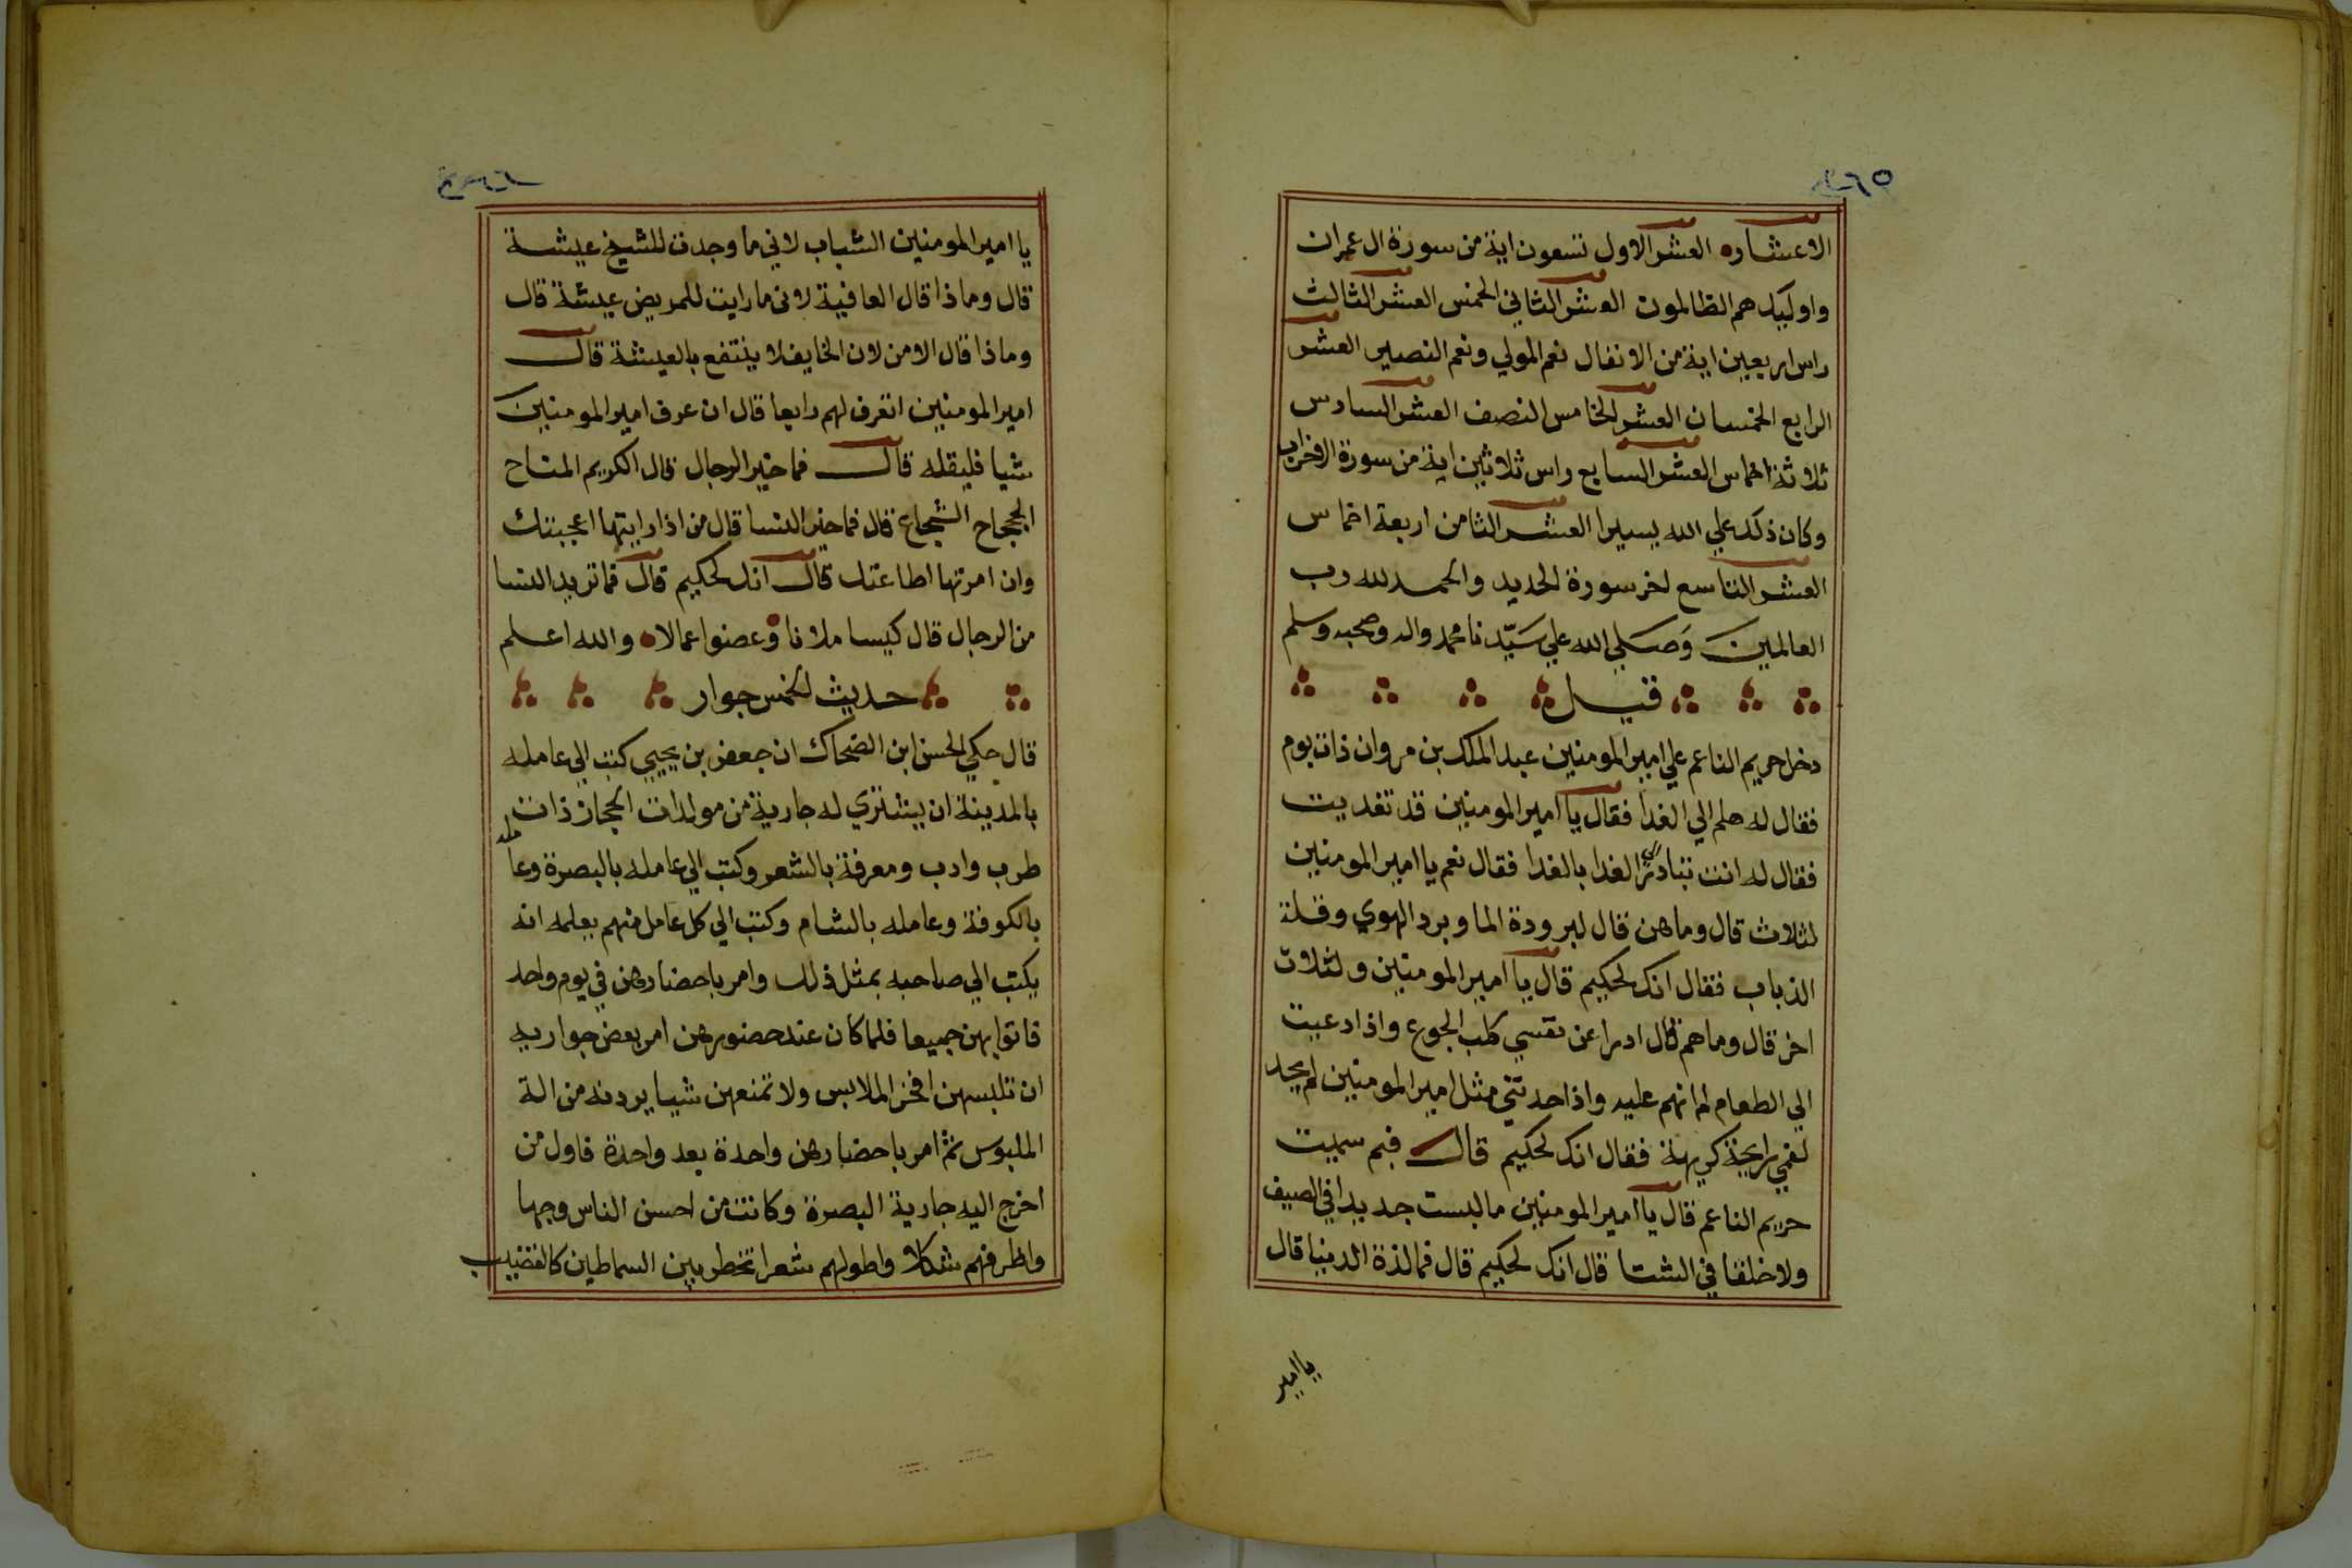 الاعشاره العشر الاول تسعون اية من سورة ال عمران
واوليك هم الظالمون العشر الثاني الخمس العشر الثالث
راس اربعين اية من الانفال نعم المولي ونعم النصير العشر
الرابع الخمسان العشر الخامس النصف العشر السادس
ثلاثة اخماس العشر السابع راس ثلاثين اية من سورة الاحزاب
وكان ذلك علي الله يسيرا العشر الثامن اربعة اخماس
العشر التاسع اخر سورة الحديد والحمد لله رب
العالمين وصلي الله علي سيدنا محمد واله وصحبه وسلم
قيل
دخل حريم الناعم علي امير المومنين عبد الملك بن مروان ذات يوم
فقال له هلم الي الغدا فقال يا امير المومنين قد تغديت
فقال له انت تبادر الي الغدا بالغدا فقال نعم يا امير المومنين
لثلاث قال وما هن قال لبرودة الما وبرد الهوي وقلة
الذباب فقال انك لحكيم قال يا امير المومنين ولثلاث
اخر قال وما هم قال ادرا عن نفسي كلب الجوع واذا دعيت
الي الطعام لم انهم عليه واذا حدثني مثل امير المومنين لم يجد
لفمي رايحة كريهة فقال انك لحكيم قال فبم سميت
حريم الناعم قال يا امير المومنين ما لبست جديدا في الصيف
ولا خلقا في الشتا قال انك لحكيم قال فما لذة الدنيا قال
يا امير
يا امير المومنين الشباب لاني ما وجدت للشيخ عيشة
قال وماذا قال العافية لاني ما رايت للمريض عيشة قال
وماذا قال الامن لان الخايف لا ينتفع بالعيشة قال
امير المومنين اتعرف لهم رابعا قال ان عرف امير المومنين
شيا فليقله قال فما خير الرجال قال الكريم المناح
الجحجاح الشجاع قال فما خير النسا قال من اذا رايتها اعجبتك
وان امرتها اطاعتك قال انك لحكيم قال فما تريد النسا
من الرجال قال كيسا ملانا وعضوا عمالاه والله اعلم
حديث الخمس جوار
قال حكي الحسن ابن الضحاك ان جعفر بن يحيي كتب الي عامله
بالمدينة ان يشتري له جارية من مولدات الحجاز ذات
طرب وادب ومعرفة بالشعر وكتب الي عامله بالبصرة وعامله
بالكوفة وعامله بالشام وكتب الي كل عامل منهم يعلمه انه
يكتب الي صاحبه بمثل ذلك وامر باحضارهن في يوم واحد
فاتوا بهن جميعا فلما كان عند حضورهن امر بعض جواريه
ان تلبسهن افخر الملابس ولا تمنعهن شيا يردنه من الة
الملبوس ثم امر باحضارهن واحدة بعد واحدة فاول من
اخرج اليه جارية البصرة وكانت من احسن الناس وجها
واظرفهم شكلا واطولهم شعرا تخطر بين السماطين كالقضيب